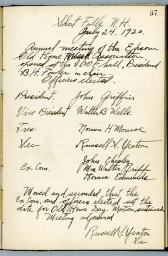 37
Short Falls N.H.
July 24, 1920.
Annual meeting of the Epsom
Old Home Week Association
at the I.O.O.F. hall, President
B.H. Fowler in chair.
Officers elected
President, John Griffin
Vice President Walter B. Wells
Treas Norman H Monroe
Sec Russell S. Yeaton
John Chesley
Ex. Com. Mrs Walter Tripp
Horace Edmunds
Moved and seconded, that the
Ex. Com, and officers elected set the
date for Old Home Day. Motion sustained
Meeting adjourned
Russell S. Yeaton
Sec